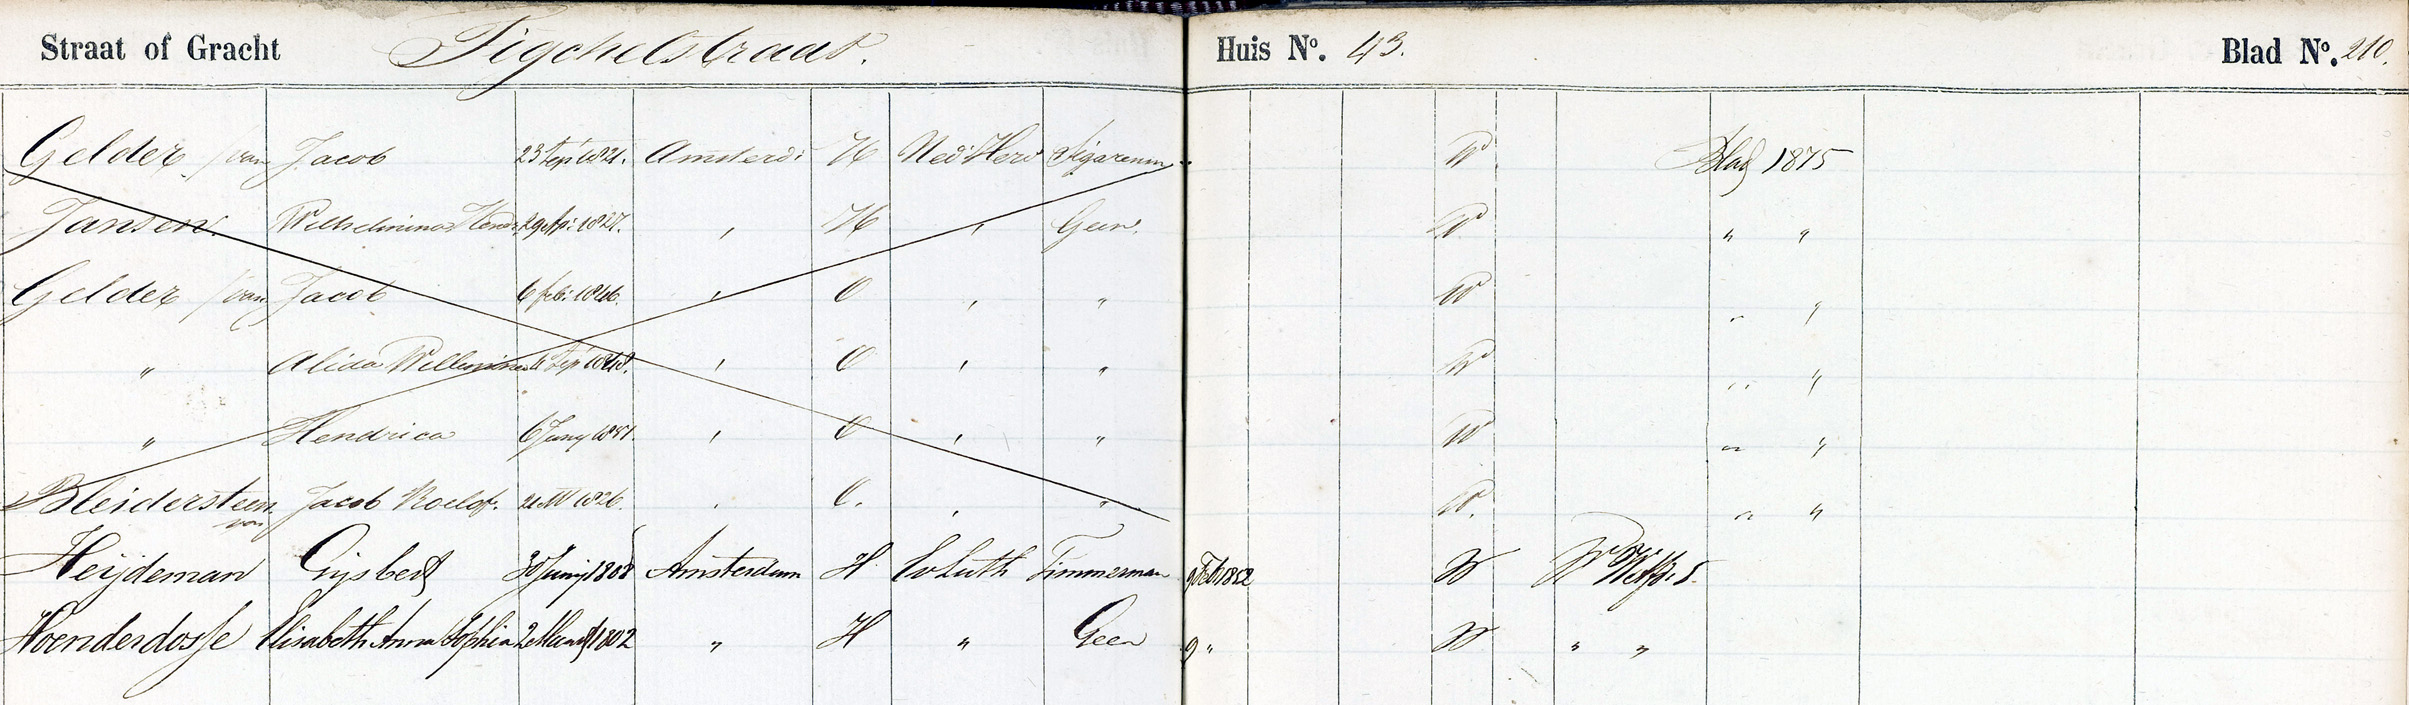 Straat of Gracht Tigchelstraat. Huis No. 43. Blad No. 210.
Gelder, /van Jacob 23 Sep 1821. Amsterd: H Ned Herv Sigarenm W Blad 1875
Jansen. Wilhelmina Hend: 29 Ap: 1827. , H , Geen. W " "
Gelder /van Jacob 6 feb: 1846. , O , " W " "
" Alida Willemina 4 Sep 1848. , O , " W " "
" Hendrica 6 Juny 1851. , O , " W " "
Bleidersteen, van Jacob Roelof. 1826. . O. . " W. " "
Heijdeman Gijsbert 30 Junij 1808 Amsterdam H. Ev Luth Timmerman 9 Feb 1852 W W
Hoenderdosse Elisabeth Anna Sophia 2 Maart 1802 " H " Geen 9 " W " "